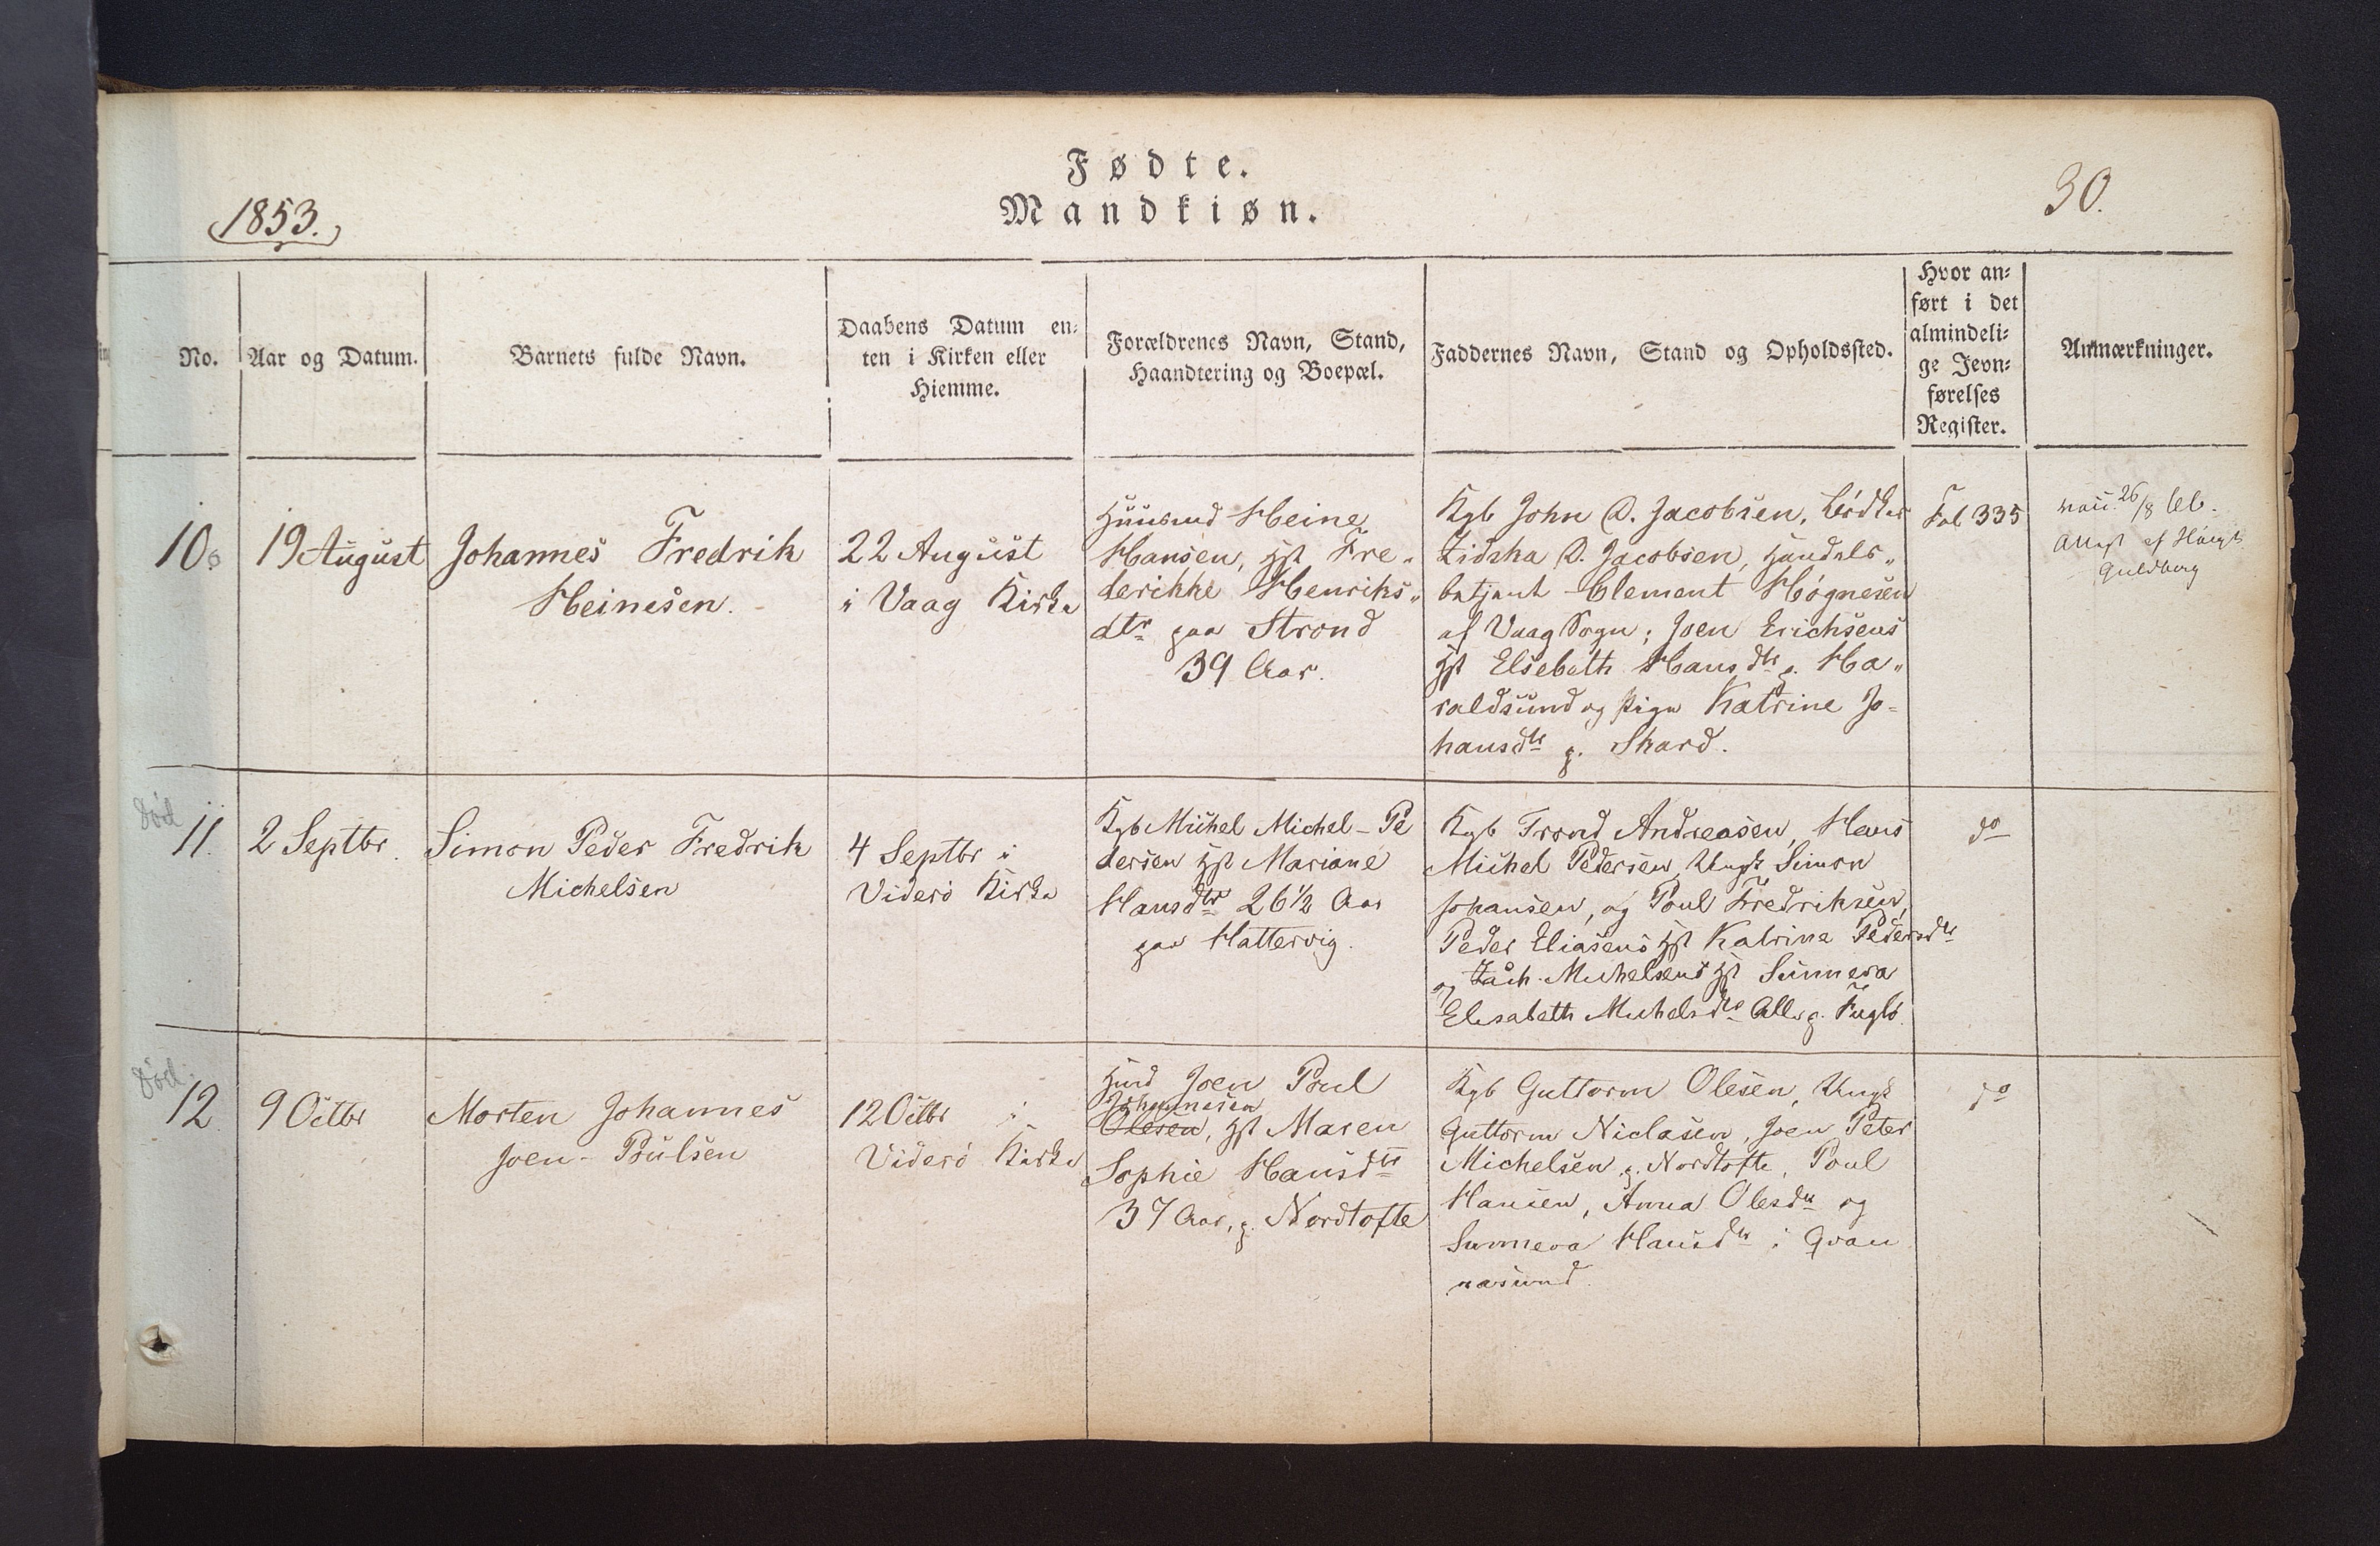 Fødte.
Mandkiøn.
1853.
30.
No.
Aar og Datum.
Barnets fulde Navn.
Daabens Datum en-
ten i Kirken eller
Hiemme.
Forældrenes Navn, Stand,
Haandtering og Boepæl.
Faddernes Navn, Stand og Opholdssted.
Hvor an-
ført i det
almindeli-
ge Jevn-
førelses
Register.
Anmærkninger.
10
19 August
Johannes Fredrik
Heinesen.
22 August
i Vaag Kirke
Huusmd Heine
Hansen, Hst Fre-
derikke Henriks-
dtr paa Strond
39 Aar.
Kgb John D. Jacobsen,
D. Jacobsen, Handels-
betjent Clement Høgnesen
af Vaag Sogn; Joen Erichsens
Hst Elsebeth Hansdtr p. Ha-
raldsund og Pige Katrine Jo-
hansdtr p. Skard.
Fol 335
26/8
Attest af
Guldberg
Død
11.
2 Septbr.
Simon Peder Fredrik
Michelsen
4 Septbr i
Viderö Kirke
Kgb Michel Michel-Pe
dersen Hst Mariane
Hansdtr 26 1/2 Aar
paa Hattervig.
Kgb Trond Andreasen, Hans
Michel Pedersen, Ungk Simon
Johansen, og Poul Fredriksen,
Peder Eliasens Hst Katrine Pedersdtr
og Zach. Michelsens Hst Sunneva
Elisabeth Michelsdtr Alle p. Fuglö.
do
Død.
12
9 Octbr
Morten Johannes
Joen-Poulsen
12 Octbr i
Viderö Kirke
Hmd Joen Poul
Johannesen
Olesen, Hst Maren
Sophie Hansdtr
37 Aar, p. Nordtofte
Kgb Guttorm Olesen, Ungk
Guttorm Niclasen, Joen Peter
Michelsen p. Nordtofte, Poul
Hansen, Anna Olesdtr og
Sunneva Hansdtr i Qvan
nasund.
do